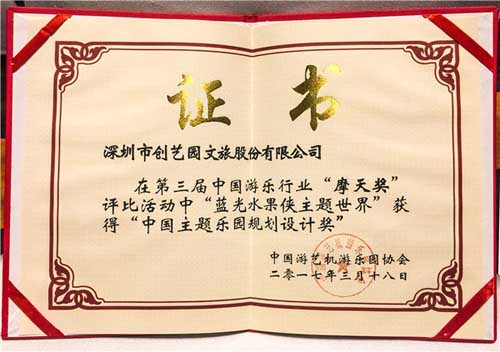 证 书
深圳市创艺园文旅股份有限公司
在第三届中国游乐行业“摩天奖”
评比活动中“蓝光水果侠主题世界”获
得“中国主题乐园规划设计奖”
中国游艺机游乐园协会
二零一七年三月十八日